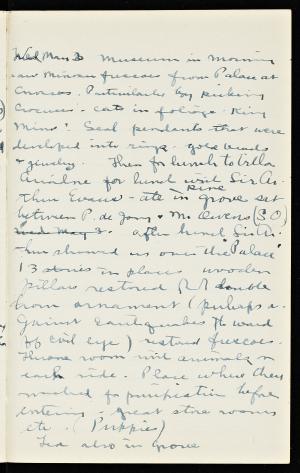 Wed May 3 Museum in morning
saw Minoan frescoes from Palace at
Cnossos. Particularly boy picking
crocuses - cats in foliage - King
Minos! Seal pendants that were
developed into rings - gold beads
& jewelry. Then for lunch to Villa
Ariadne for lunch with Sir Ar-
thur Evans - ate in pine grove sat
between P. de Jong & Mr.
Wed May 3. After lunch Sir Ar-
thur showed us over the Palace
13 stories in places wooden
pillars restored double
horn ornament (perhaps a-
gainst earthquakes to ward
off evil eye) restored frescoes.
Throne room with animals on
each side. Place where they
washed for purification before
entering - great store rooms
etc. (Puppies)
Tea also in grove